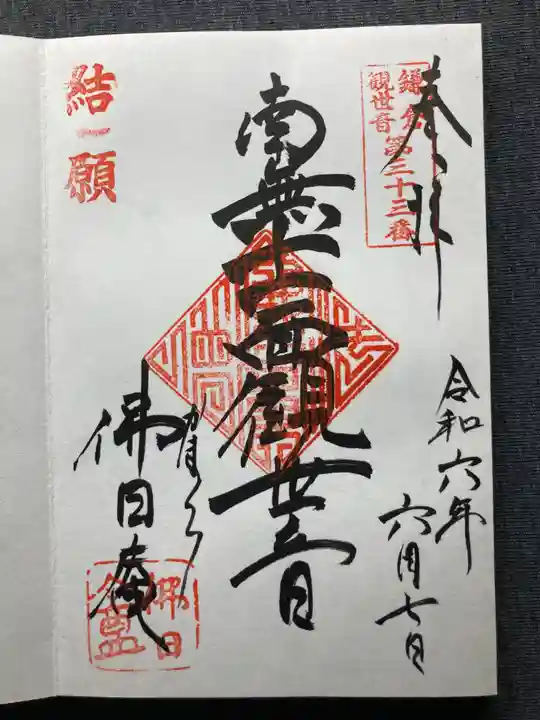 奉拝
鎌倉
観世音第三十三番
令和六年
六月七日
南無十一面観世音
かまくら
佛日庵
結願
佛日